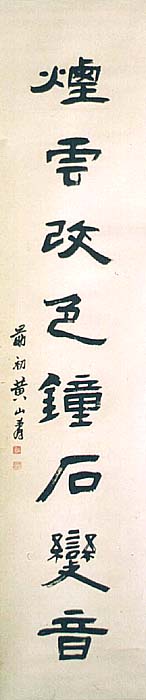 煙雲改色鐘石變音
勗初黃山壽